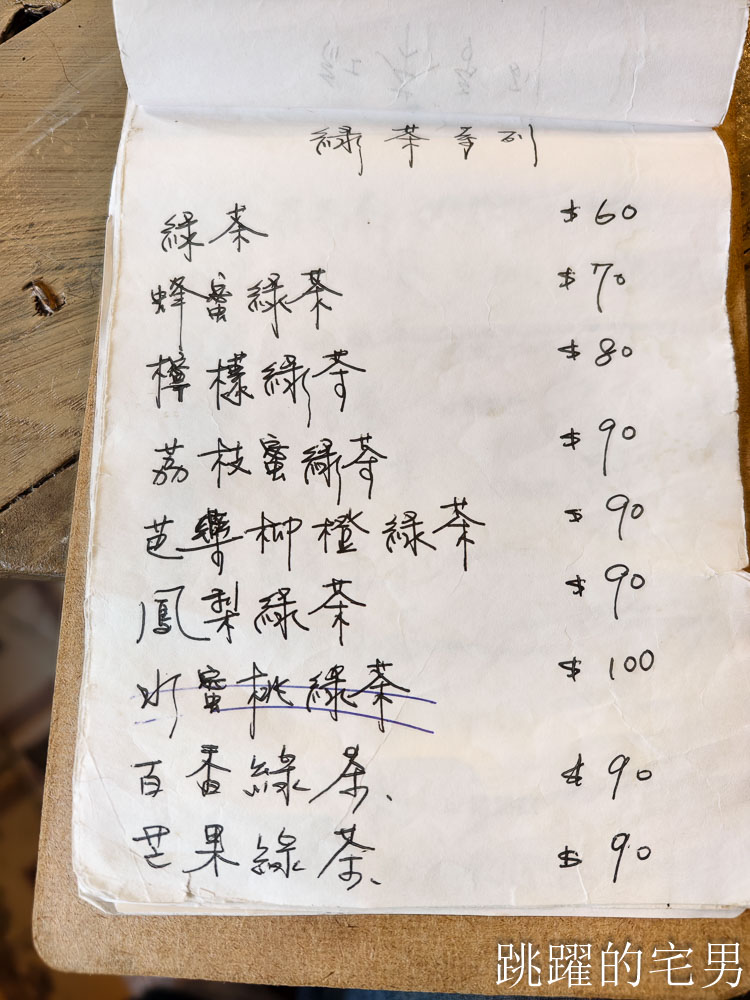 綠茶系列
綠茶 $60
蜂蜜綠茶 $70
檸檬綠茶 $80
荔枝蜜綠茶 $90
芭樂柳橙綠茶 $90
鳳梨綠茶 $90
水蜜桃綠茶 $100
百香綠茶、 $90
芒果綠茶、 $90
跳躍的宅男